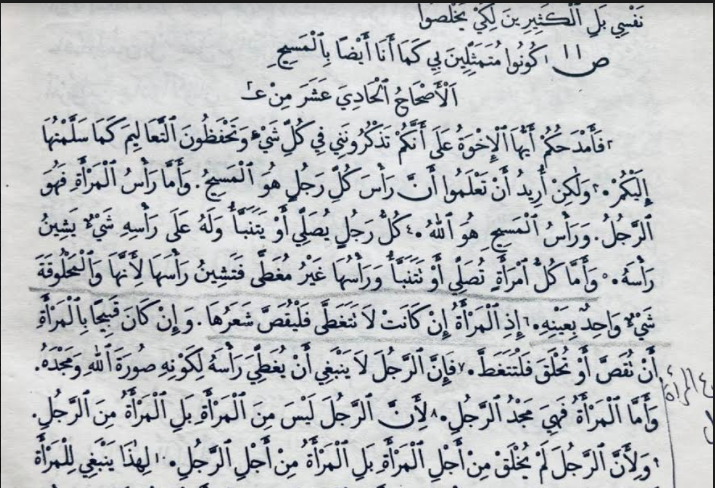 نَفْسِي بَلِ ٱلْكَثِيرِينَ لِكَيْ يَخْلُصُوا
ص ١١ ١ كُونُوا مُتَمَثِّلِينَ بِي كَمَا أَنَا أَيْضًا بِٱلْمَسِيحِ
اَلْأَصْحَاحُ ٱلْحَادِيَ عَشَرَ مِنْ ع ٢
٢ فَأَمْدَحُكُمْ أَيُّهَا ٱلْإِخْوَةُ عَلَى أَنَّكُمْ تَذْكُرُونَنِي فِي كُلِّ شَيْءٍ وَتَحْفَظُونَ ٱلتَّعَالِيمَ كَمَا سَلَّمْتُهَا
إِلَيْكُمْ. ٣ وَلٰكِنْ أُرِيدُ أَنْ تَعْلَمُوا أَنَّ رَأْسَ كُلِّ رَجُلٍ هُوَ ٱلْمَسِيحُ. وَأَمَّا رَأْسُ ٱلْمَرْأَةِ فَهُوَ
ٱلرَّجُلُ. وَرَأْسُ ٱلْمَسِيحِ هُوَ ٱللهُ. ٤ كُلُّ رَجُلٍ يُصَلِّي أَوْ يَتَنَبَّأُ وَلَهُ عَلَى رَأْسِهِ شَيْءٌ يَشِينُ
رَأْسَهُ. ٥ وَأَمَّا كُلُّ ٱمْرَأَةٍ تُصَلِّي أَوْ تَتَنَبَّأُ وَرَأْسُهَا غَيْرُ مُغَطًّى فَتَشِينُ رَأْسَهَا لِأَنَّهَا وَٱلْمَحْلُوقَةَ
شَيْءٌ وَاحِدٌ بِعَيْنِهِ. ٦ إِذِ ٱلْمَرْأَةُ إِنْ كَانَتْ لَا تَتَغَطَّى فَلْيُقَصَّ شَعَرُهَا. وَإِنْ كَانَ قَبِيحًا بِٱلْمَرْأَةِ
أَنْ تُقَصَّ أَوْ تُحْلَقَ فَلْتَتَغَطَّ. ٧ فَإِنَّ ٱلرَّجُلَ لَا يَنْبَغِي أَنْ يُغَطِّيَ رَأْسَهُ لِكَوْنِهِ صُورَةَ ٱللهِ وَمَجْدَهُ.
وَأَمَّا ٱلْمَرْأَةُ فَهِيَ مَجْدُ ٱلرَّجُلِ. ٨ لِأَنَّ ٱلرَّجُلَ لَيْسَ مِنَ ٱلْمَرْأَةِ بَلِ ٱلْمَرْأَةُ مِنَ ٱلرَّجُلِ.
٩ وَلِأَنَّ ٱلرَّجُلَ لَمْ يُخْلَقْ مِنْ أَجْلِ ٱلْمَرْأَةِ بَلِ ٱلْمَرْأَةُ مِنْ أَجْلِ ٱلرَّجُلِ. ١٠ لِهٰذَا يَنْبَغِي لِلْمَرْأَةِ